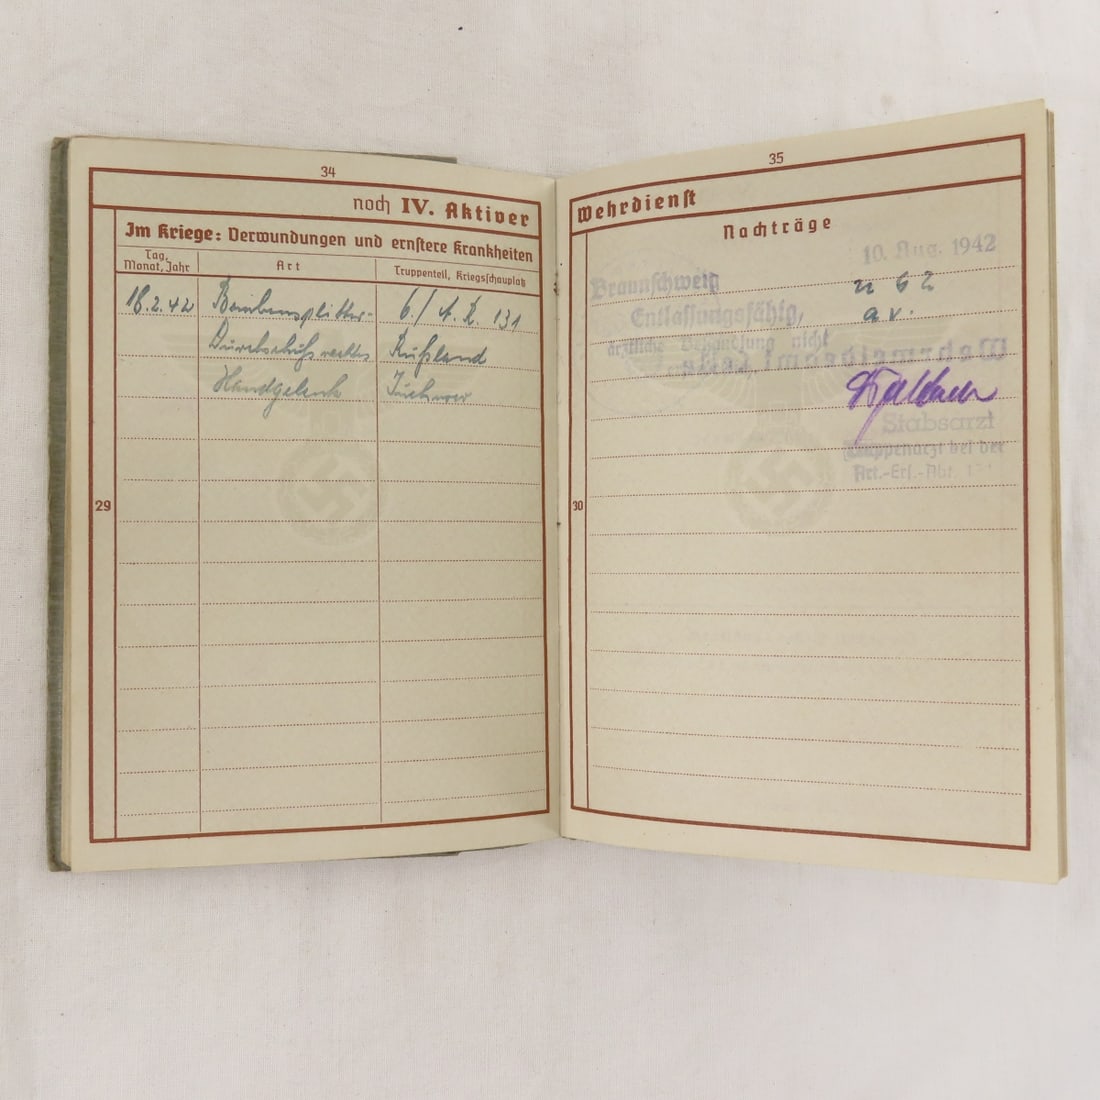 34
noch IV. Aktiver
Im Kriege: Verwundungen und ernstere Krankheiten
Tag, Monat, Jahr
Art
Truppenteil, Kriegsschauplatz
18.2.42 Bombensplitter- 6./A.R. 131
Durchschuß rechtes Rußland
Handgelenk
29
35
Wehrdienst
Nachträge
10. Aug. 1942
Braunschweig
u 62
Entlassungsfähig,
a.v.
ärztliche Behandlung nicht
Wehrmeldeamt Celle
Stabsarzt
Truppenarzt bei der
Art.-Ers.-Abt.
30